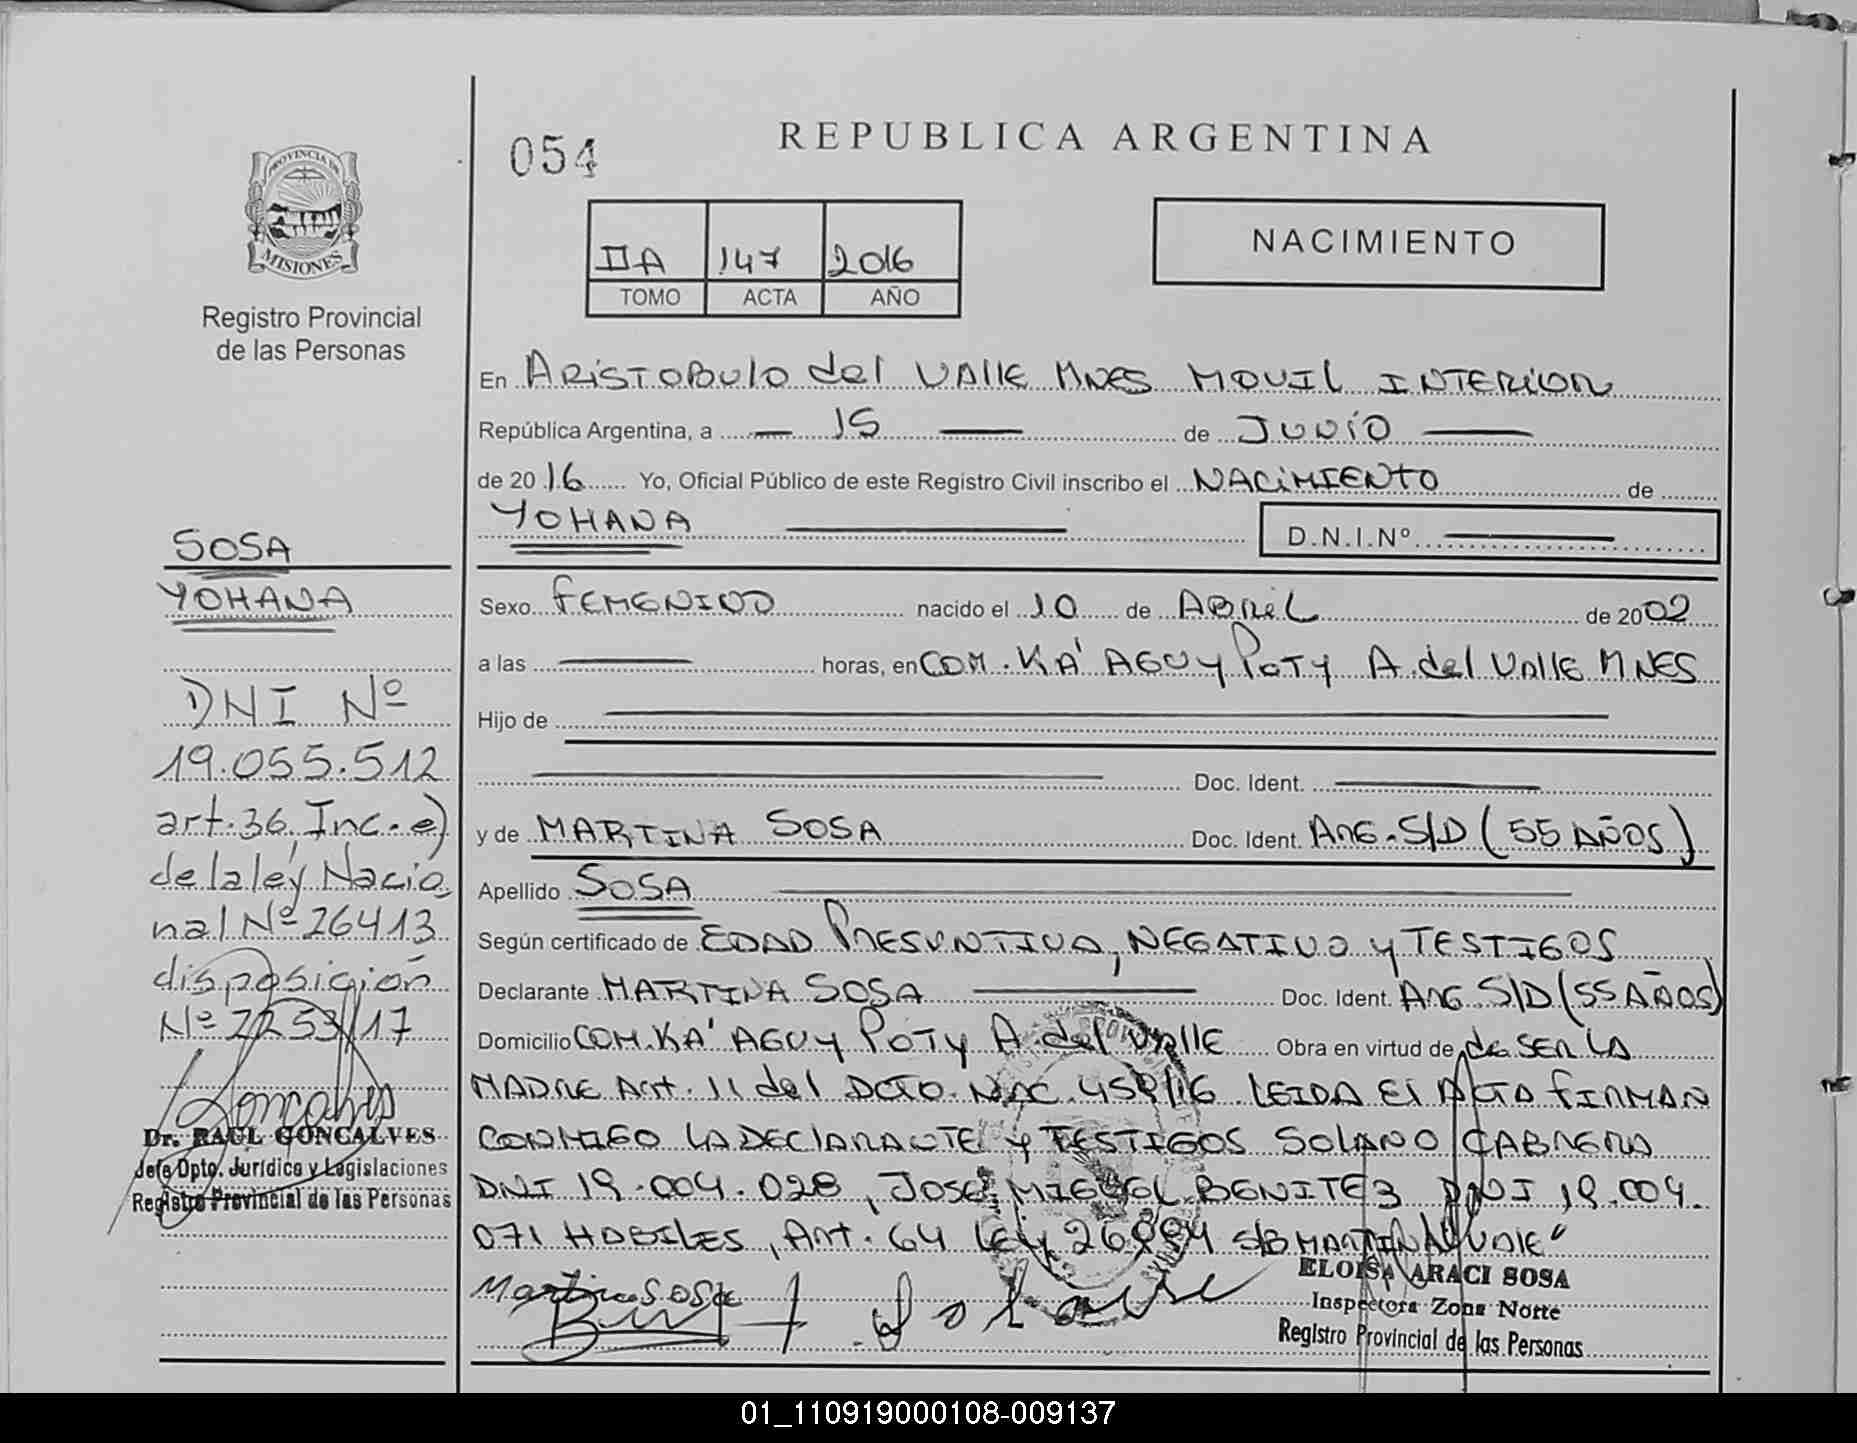 REPUBLICA ARGENTINA
054
NACIMIENTO
PROVINCIA DE
MISIONES
Registro Provincial
de las Personas
IIA 147 2016
TOMO ACTA AÑO
En ARISTOBULO del VALLE MNES MOVIL INTERIOR
República Argentina, a — 15 — de JUNIO —
de 2016 Yo, Oficial Público de este Registro Civil inscribo el NACIMIENTO de
YOHANA — D.N.I.Nº —
Sexo FEMENINO nacido el 10 de ABRIL de 2002
a las — horas, en COM. KA' AGUY POTY A. del VALLE MNES
Hijo de —
— Doc. Ident. —
y de MARTINA SOSA Doc. Ident. ARG. S/D (55 AÑOS)
Apellido SOSA —
Según certificado de EDAD PRESUNTIVA, NEGATIVO y TESTIGOS
Declarante MARTINA SOSA — Doc. Ident. ARG S/D (55 AÑOS)
Domicilio COM. KA' AGUY POTY A. del VALLE Obra en virtud de de SER LA
MADRE Art. 11 del DCTO. NAC. 459/16 LEIDA El ACTA FIRMAN
CONMIGO LA DECLARANTE y TESTIGOS SOLANO CABRERA
DNI 19.004.028, JOSE MIGUEL BENITEZ DNI 19.004.
071 HABILES, Art. 64 LEY 26994 S/B MARTINA VALE"
Martina SOSA
Solano
ELOISA ARACI SOSA
Inspectora Zona Norte
Registro Provincial de las Personas
SOSA
YOHANA
DNI Nº
19.055.512
art. 36, Inc. e)
de la ley Nacio
nal Nº 26413
disposición
Nº 2253/17
Goncalves
Dr. RAUL GONCALVES
Jefe Dpto. Jurídico y Legislaciones
Registro Provincial de las Personas
01_110919000108-009137